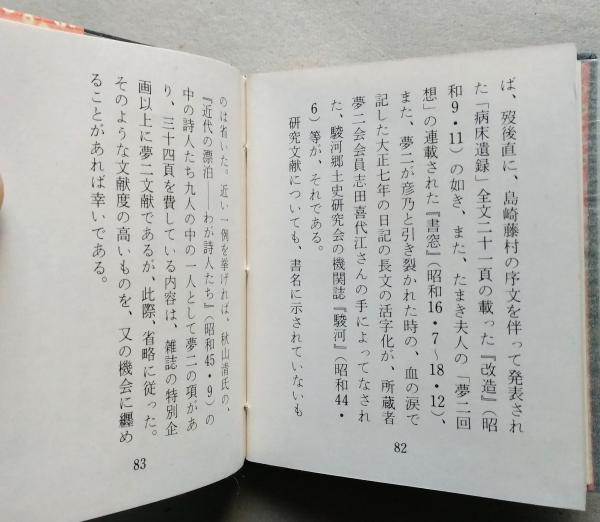 ば、歿後直に、島崎藤村の序文を伴って発表され
た「病床遺録」全文二十一頁の載った『改造』(昭
和9・11)の如き、また、たまき夫人の「夢二回
想」の連載された『書窓』(昭和16・7～18・12)、
また、夢二が彦乃と引き裂かれた時の、血の涙で
記した大正七年の日記の長文の活字化が、所蔵者
夢二会会員志田喜代江さんの手によってなされ
た、駿河郷土史研究会の機関誌『駿河』(昭和44・
6)等が、それである。
研究文献についても、書名に示されていないも
82
のは省いた。近い一例を挙げれば、秋山清氏の、
『近代の漂泊――わが詩人たち』(昭和45・9)の
中の詩人たち九人の中の一人として夢二の項があ
り、三十四頁を費している内容は、雑誌の特別企
画以上に夢二文献であるが、此際、省略に従った。
そのような文献度の高いものを、又の機会に纒め
ることがあれば幸いである。
83